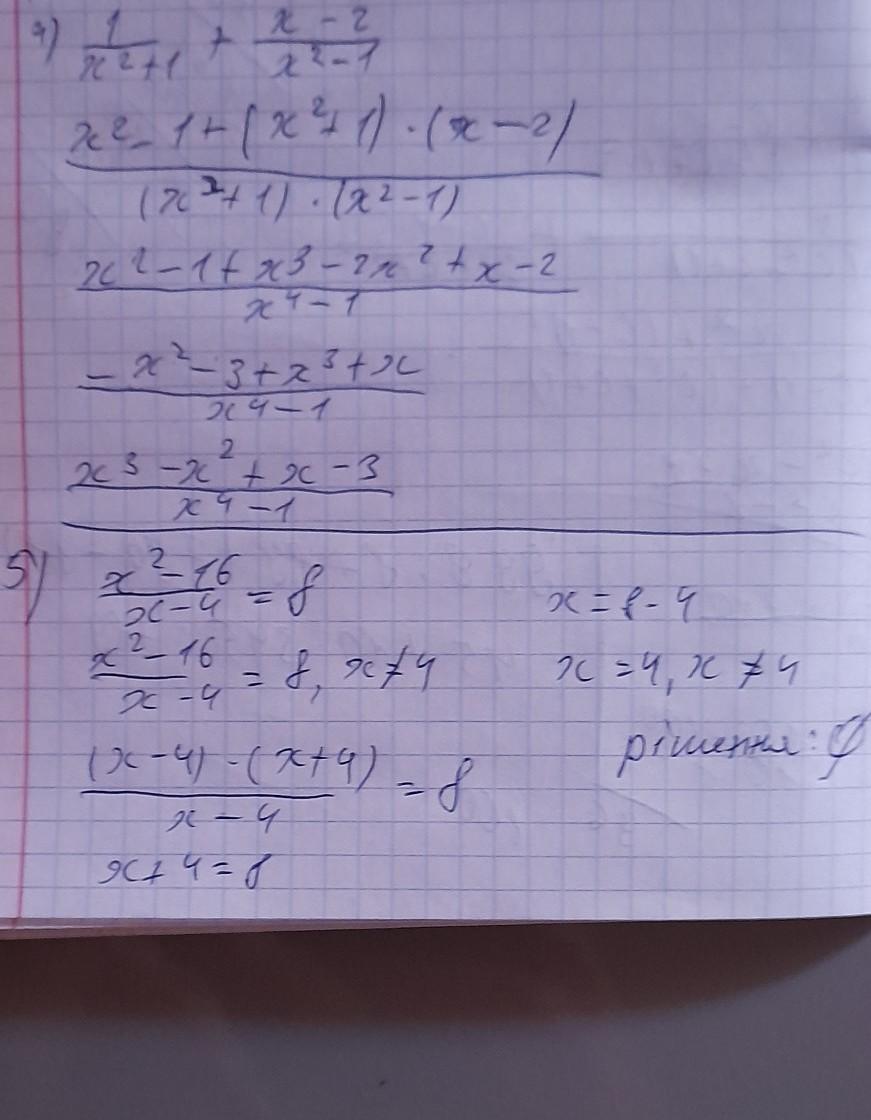 4) 1/(x²+1) + (x-2)/(x²-1)
(x²-1+(x²+1)·(x-2))/((x²+1)·(x²-1))
(x²-1+x³-2x²+x-2)/(x⁴-1)
(-x²-3+x³+x)/(x⁴-1)
(x³-x²+x-3)/(x⁴-1)
5) (x²-16)/(x-4) = 8
(x²-16)/(x-4) = 8, x≠4
((x-4)·(x+4))/(x-4) = 8
x+4=8
x=8-4
x=4, x≠4
рішення: ∅